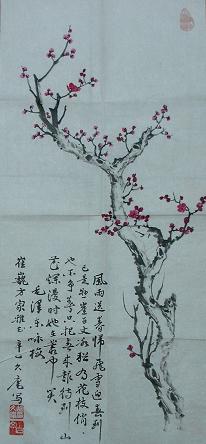 風雨送春歸飛雪迎春到
已是懸崖百丈冰猶有花枝俏
也不争春只把春來報待到山
花爛漫時她在叢中笑
毛澤東咏梅
崔巍方家雅正